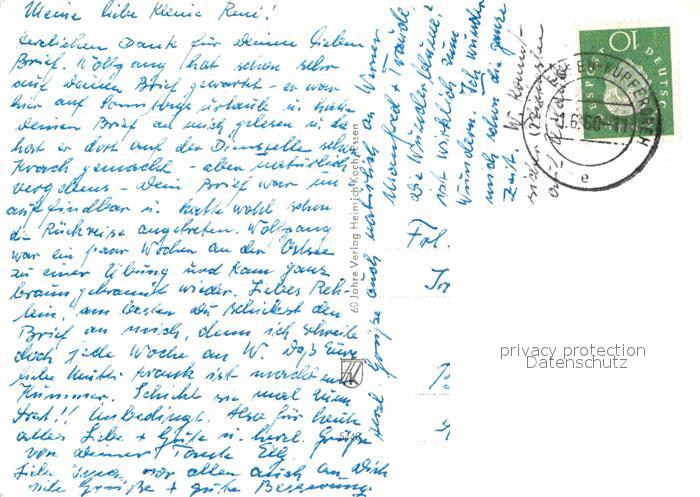 Meine liebe kleine René!
Herzlichen Dank für Deinen lieben
Brief. Wolfgang hat schon sehr
auf Deinen Brief gewartet – er war
hier auf Sonntagsurlaub u. habe
Deinen Brief an mich gelesen u. da
hat er dort auf der Dienststelle sehr
Krach gemacht – aber natürlich
vergebens – Dein Brief war un
auffindbar u. hatte wohl schon
die Rückreise angetreten. Wolfgang
war ein paar Wochen an der Ostsee
zu einer Übung und kam ganz
braungebrannt wieder. Liebes Reh-
lein, am besten Du schickst den
Brief an mich, denn ich schreibe
doch jede Woche an W. Daß Eure
liebe Mutti krank ist macht mir
Kummer. Schickt sie mal zum
Arzt!! Unbedingt. Also für heute
alles Liebe + Gute u. herzl. Grüße
von Deiner Tante Elly
vor allen auch an Dich
viele Grüße + gute Besserung.
Herzl. Grüße auch natürlich an Werner
Manfred + Traudl.
die Wunderblume?
ist wirklich zum
Wundern. Ich wunder
mich schon die ganze
Zeit.
60 Jahre Verlag Heinrich Koch, Essen
Frl.
10
DEUTSCHE
BUNDESPOST
ESSEN-KUPFERDREH
.6.60-17
e
privacy protection
Datenschutz